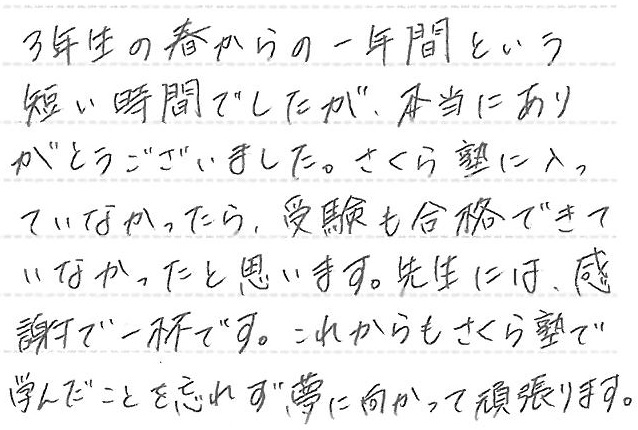 3年生の春からの一年間という
短い時間でしたが、本当にあり
がとうございました。さくら塾に入っ
ていなかったら、受験も合格できて
いなかったと思います。先生には、感
謝で一杯です。これからもさくら塾で
学んだことを忘れず、夢に向かって頑張ります。